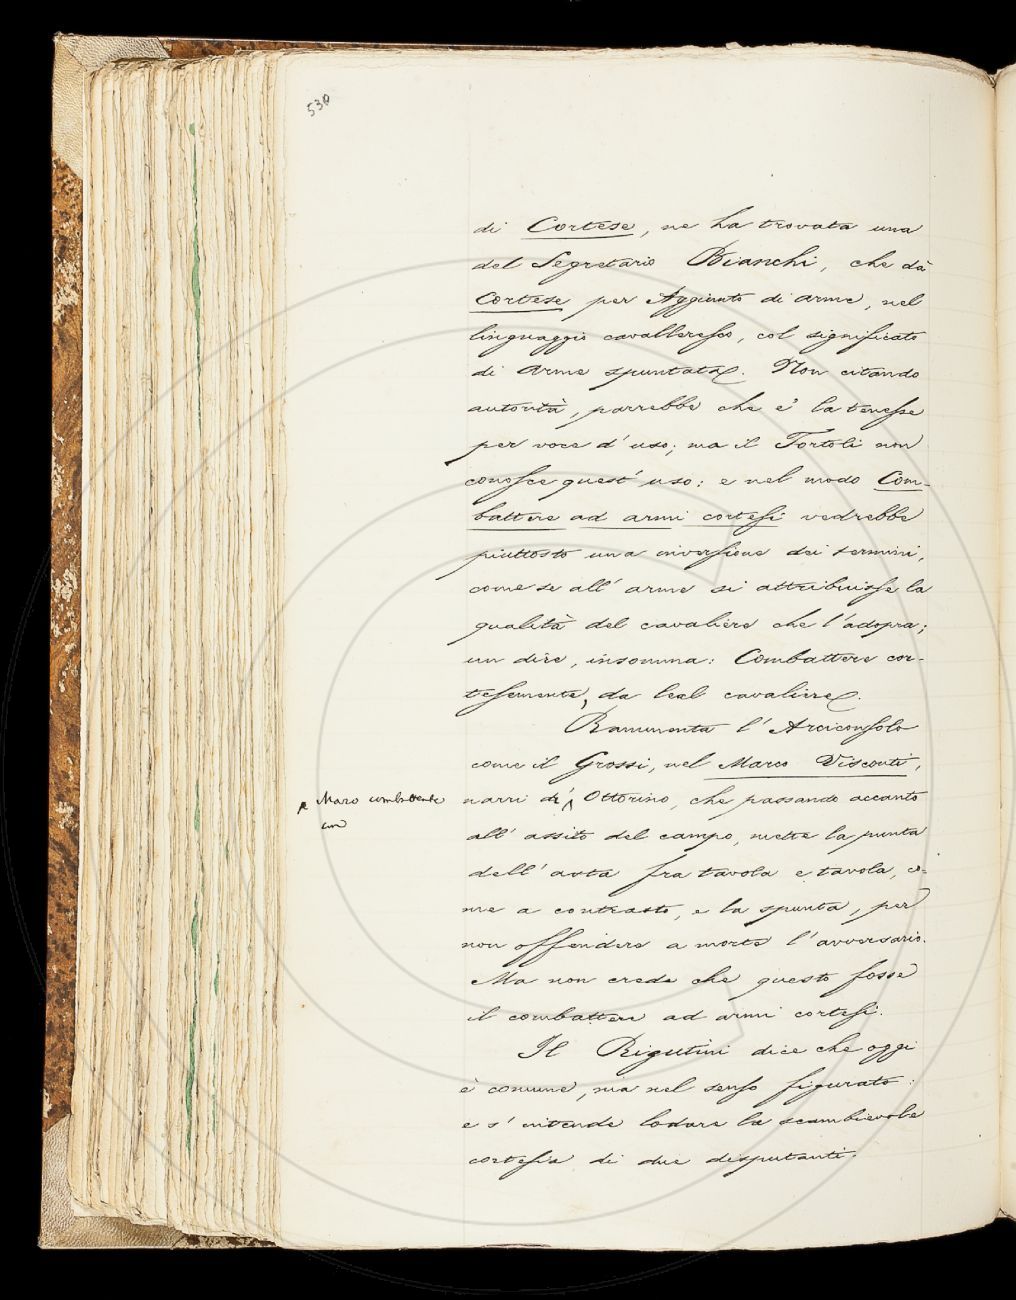 530
di Cortese, ne ha trovata una
del Segretario Bianchi, che dà
Cortese per Aggiunto di arme, nel
linguaggio cavalleresco, col significato
di Arme spuntata. Non citando
autorità, parrebbe che e' la tenesse
per voce d'uso; ma il Tortoli non
conosce quest'uso: e nel modo Com-
battere ad armi cortesi vedrebbe
piuttosto una inversione dei termini,
come se all'arme si attribuisse la
qualità del cavaliere che l'adopra;
un dire, insomma: Combattere cor-
tesemente, da leal cavaliere.
Rammenta l'Arciconsolo
come il Grossi, nel Marco Visconti,
narri di Ottorino, che passando accanto
all'assito del campo, mette la punta
dell'asta fra tavola e tavola, co-
me a contrasto, e la spunta, per
non offendere a morte l'avversario.
Ma non crede che questo fosse
il combattere ad armi cortesi.
Il Rigutini dice che oggi
è comune, ma nel senso figurato:
e s'intende lodare la scambievole
cortesia di due disputanti.
combattente
con